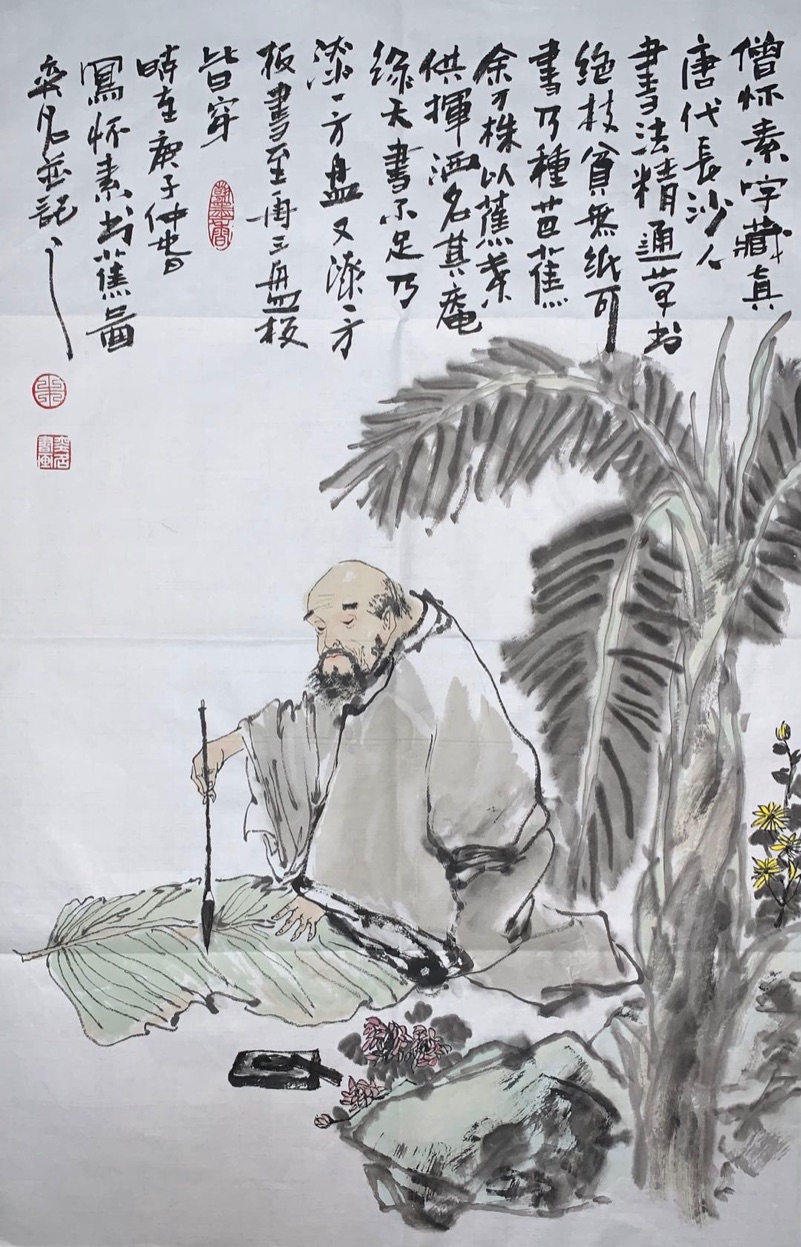 僧怀素字藏真
唐代長沙人
書法精通草书
绝技貧無纸可
書乃種芭蕉
余万株以蕉葉
供揮洒名其庵
绿天書不足乃
漆一方盘又漆一方
板書至再三盘板
皆穿
時在庚子仲春
寫怀素书蕉啚
奕凡並記